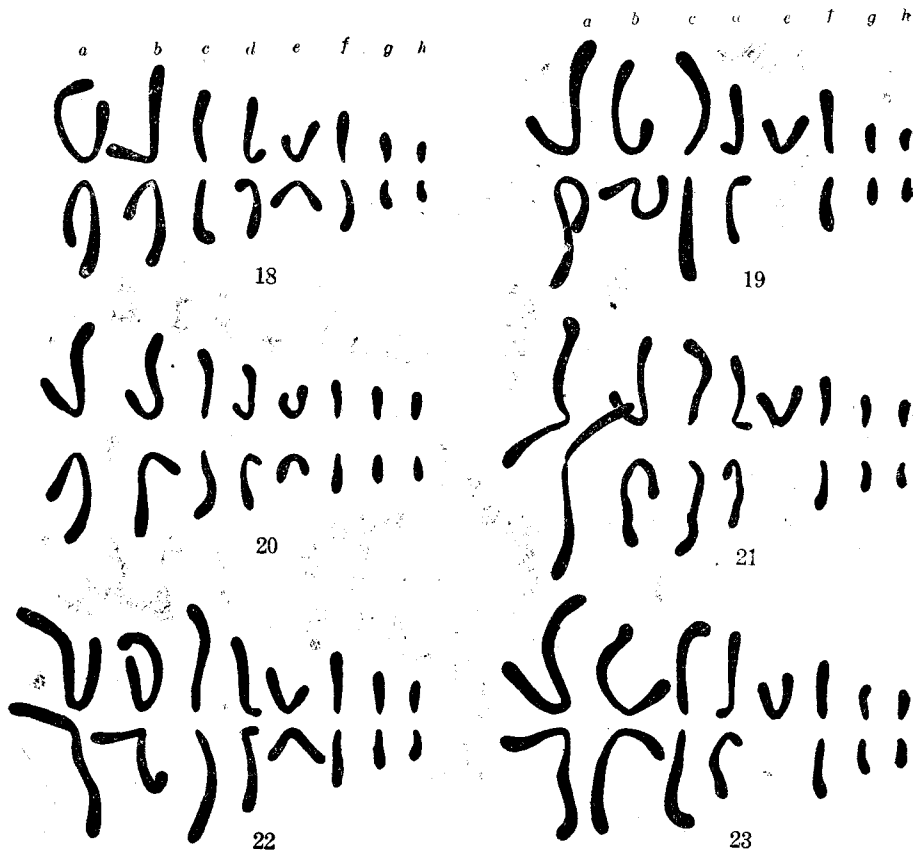 a b c d e f g h
a b c d e f g h
18
19
20
21
22
23